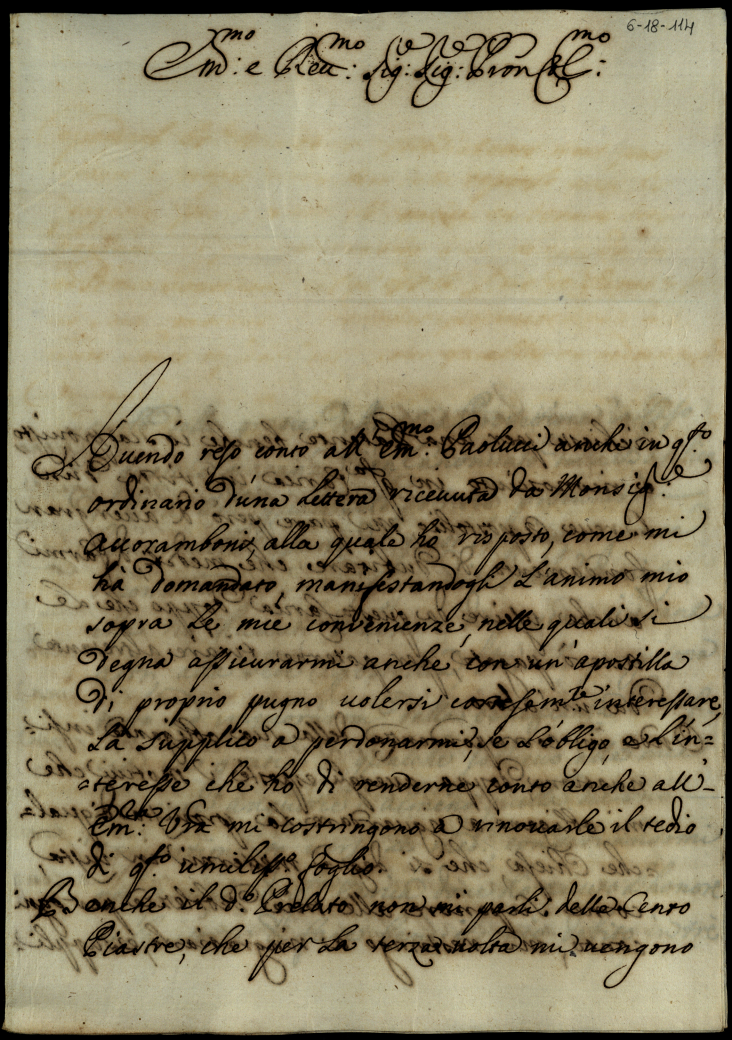 6-18-114
Em.mo e Reu.mo Sig.e Sig.e Pron Col.mo
Auendo reso conto all'Em.mo Paolucci anche in q.sto
ordinario d'una Lettera riceuuta da Monsig.e
Accoramboni, alla quale hò risposto, come mi
hà domandato, manifestandogli L'animo mio
sopra Le mie conuenienze, nelle quali si
degna assicurarmi anche con un'apostilla
di proprio pugno uolersi cortesem.te interessare,
La supplico à perdonarmi, se L'obligo, e l'in=
=teresse che hò di renderne conto anche all'-
Em.za Vra mi costringono à rinouarle il tedio
di q.sto umiliss.o foglio.
E anche il d.o Prelato non mi parli delle Cento
Piastre, che per La terza uolta mi uengono